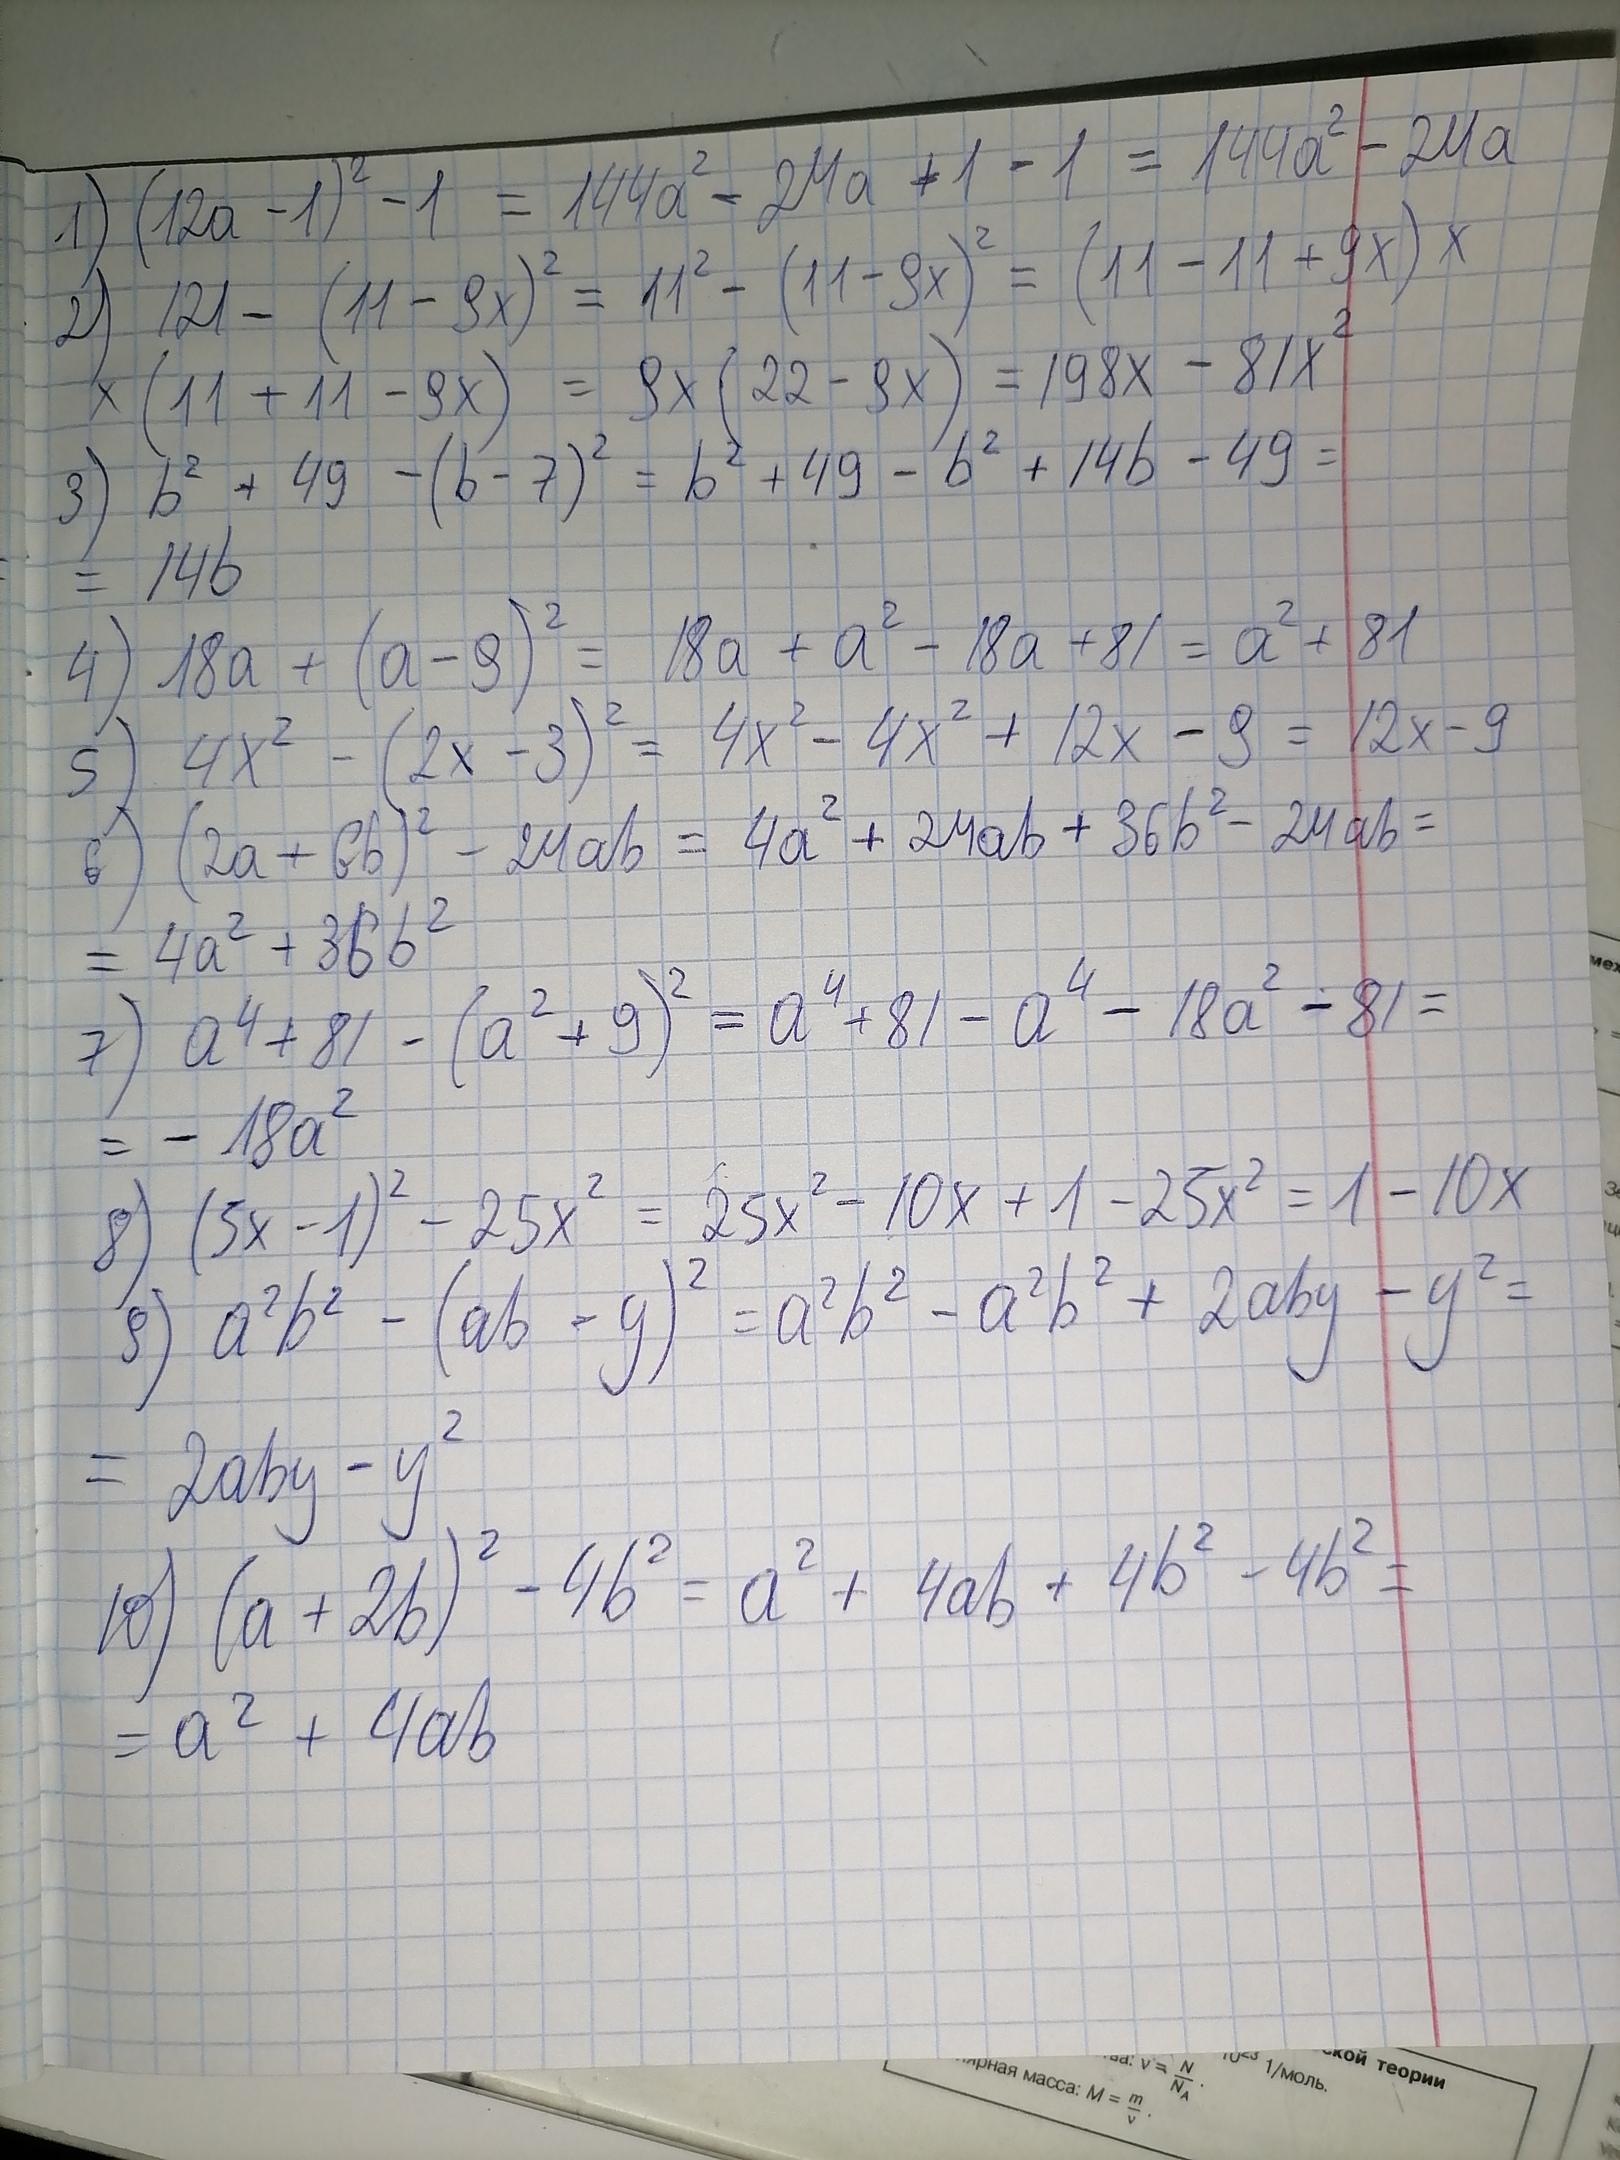 1) (12a - 1)² - 1 = 144a² - 24a + 1 - 1 = 144a² - 24a
2) 121 - (11 - 9x)² = 11² - (11 - 9x)² = (11 - 11 + 9x) x
x (11 + 11 - 9x) = 9x (22 - 9x) = 198x - 81x²
3) b² + 49 - (b - 7)² = b² + 49 - b² + 14b - 49 =
= 14b
4) 18a + (a - 9)² = 18a + a² - 18a + 81 = a² + 81
5) 4x² - (2x - 3)² = 4x² - 4x² + 12x - 9 = 12x - 9
6) (2a + 6b)² - 24ab = 4a² + 24ab + 36b² - 24ab =
= 4a² + 36b²
7) a⁴ + 81 - (a² + 9)² = a⁴ + 81 - a⁴ - 18a² - 81 =
= - 18a²
8) (5x - 1)² - 25x² = 25x² - 10x + 1 - 25x² = 1 - 10x
9) a²b² - (ab - y)² = a²b² - a²b² + 2aby - y² =
= 2aby - y²
10) (a + 2b)² - 4b² = a² + 4ab + 4b² - 4b² =
= a² + 4ab
ской теории
ν = N/N_A. 1/моль.
масса: M = m/ν.